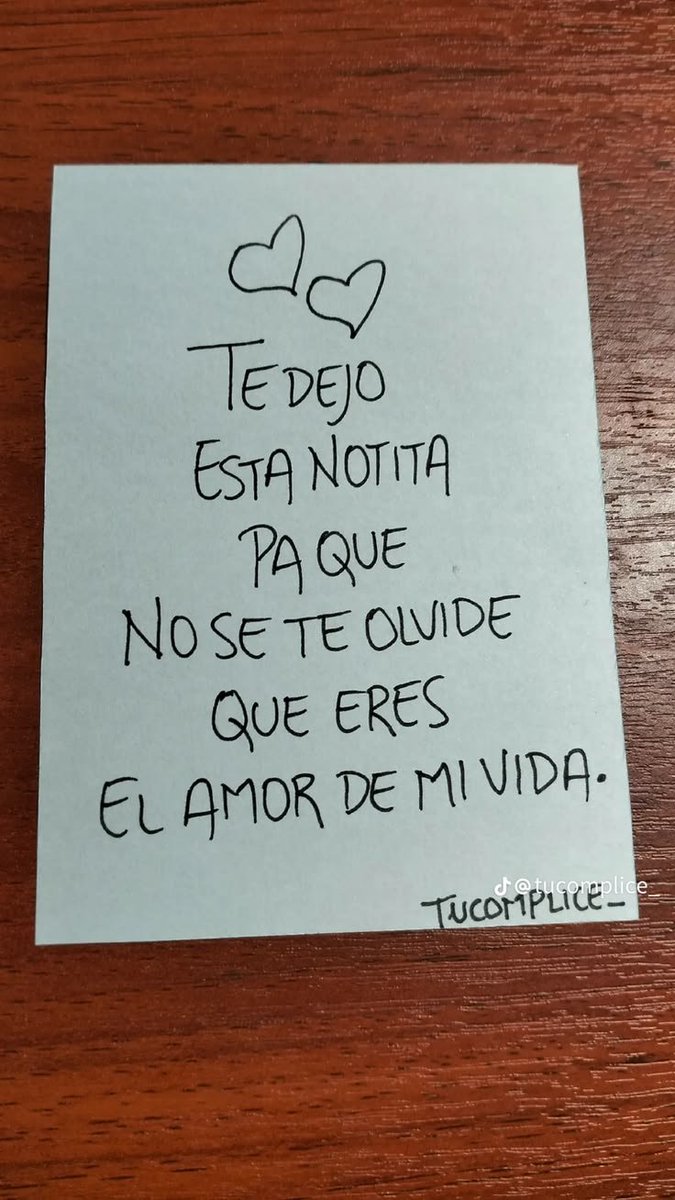 TE DEJO
ESTA NOTITA
PA QUE
NO SE TE OLVIDE
QUE ERES
EL AMOR DE MI VIDA.
@tucomplice_
TUCOMPLICE_